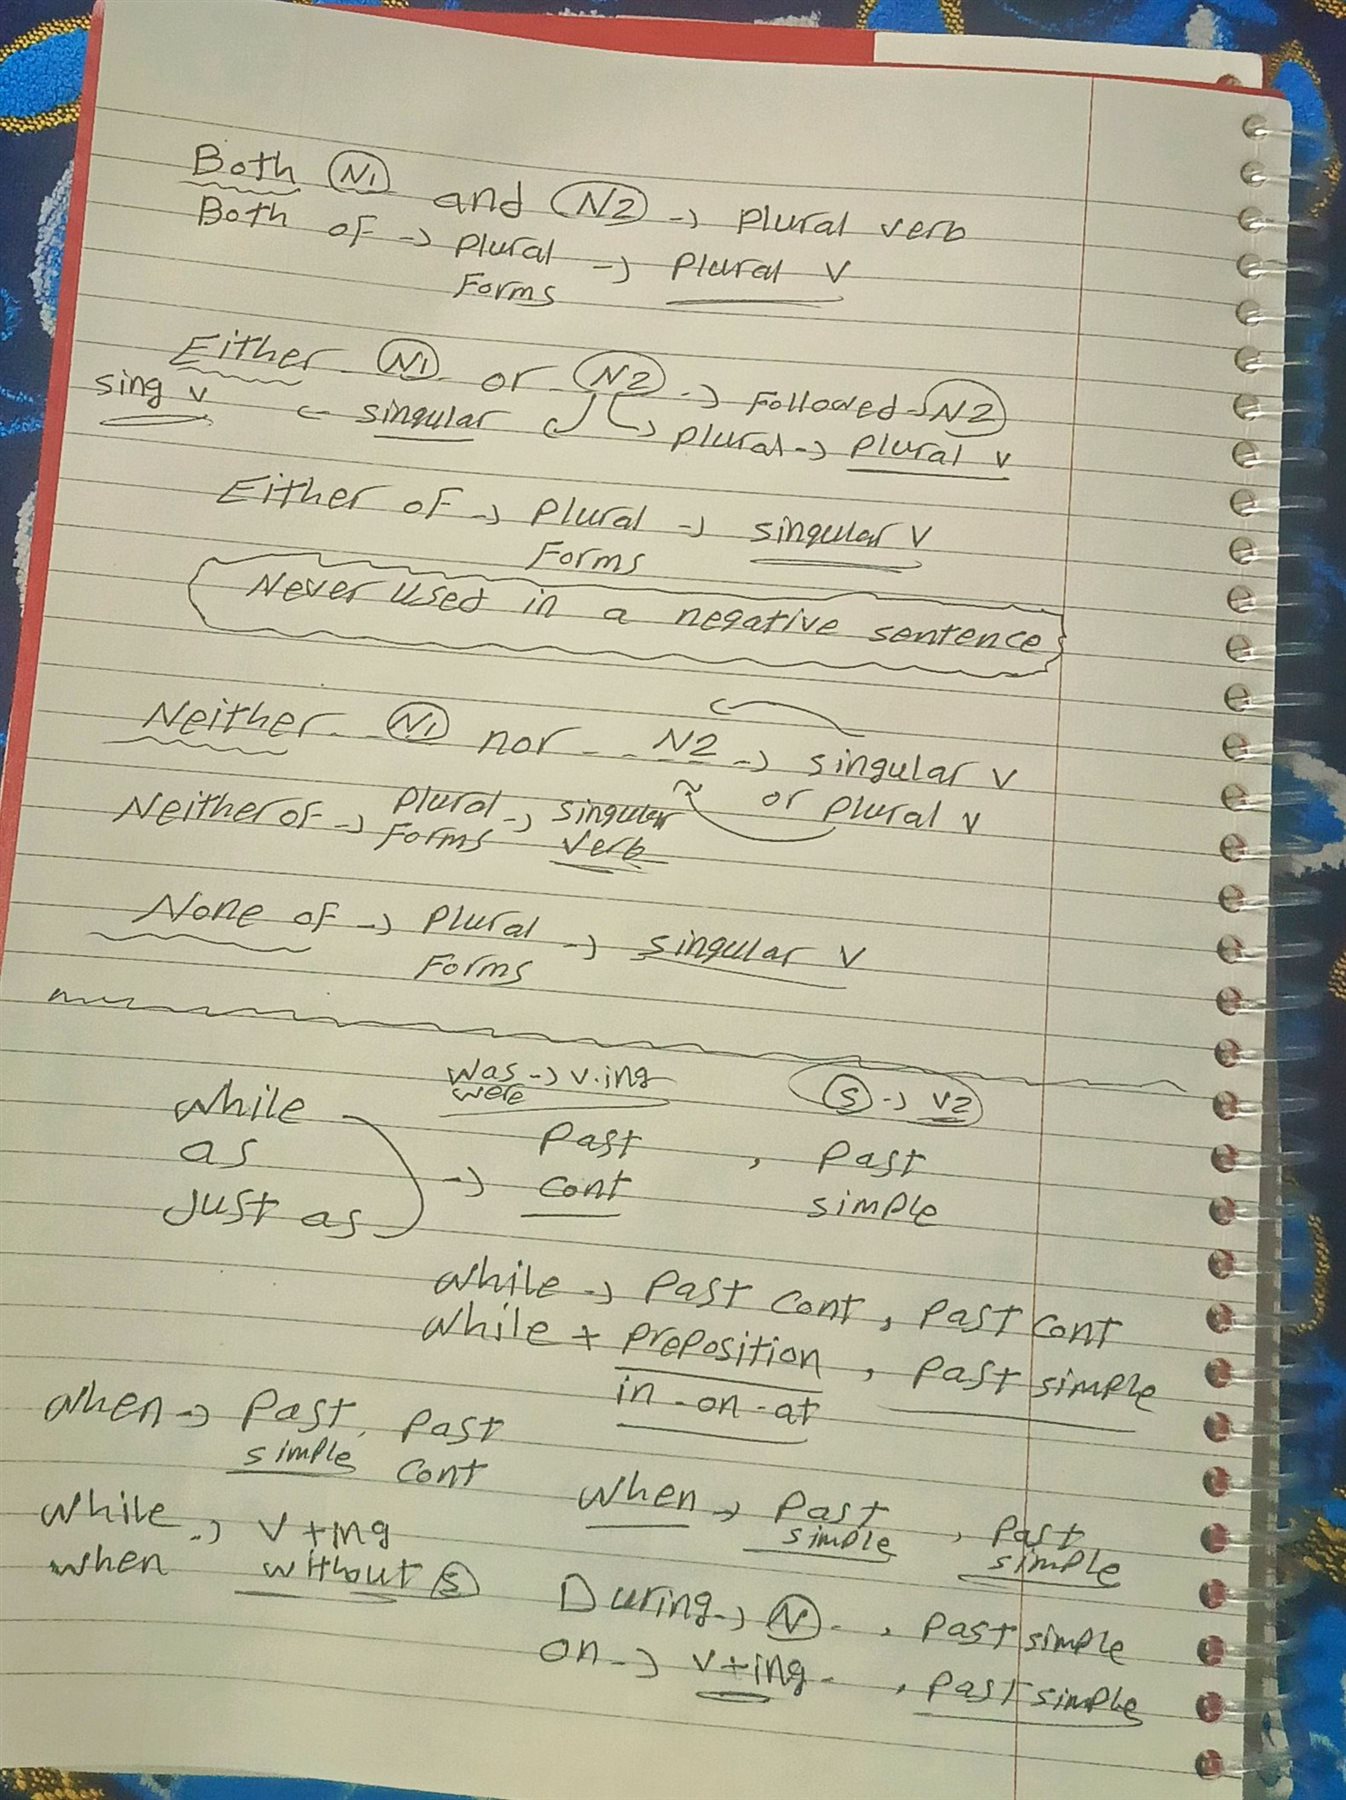 Both N1 and N2 → plural verb
Both of → plural forms → plural v
Either N1 or N2 → followed → N2
sing v ← singular ↲ ↳ plural → plural v
Either of → plural forms → singular v
Never used in a negative sentence
Neither N1 nor N2 → singular v
or plural v
Neither of → plural forms → singular verb
None of → plural forms → singular v
was → v.ing
were
(s) → v2
while
as
just as
→ past cont , past simple
while → past cont , past cont
while + preposition , past simple
in - on - at
when → past simple , past cont
when → past simple , past simple
while → v+ing
when without (s)
During → N , past simple
on → v+ing , past simple